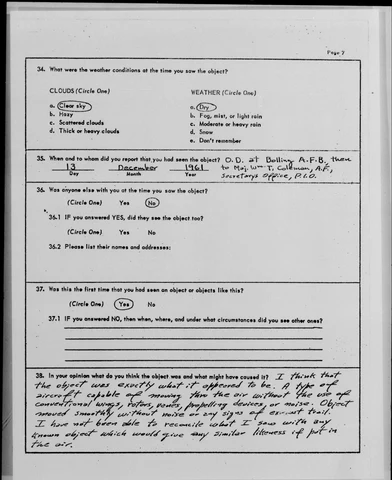 Page 7
34. What were the weather conditions at the time you saw the object?
CLOUDS (Circle One)
a. Clear sky
b. Hazy
c. Scattered clouds
d. Thick or heavy clouds
WEATHER (Circle One)
a. Dry
b. Fog, mist, or light rain
c. Moderate or heavy rain
d. Snow
e. Don't remember
35. When and to whom did you report that you had seen the object? O.D. at Bolling A.F.B. then
13 December 1961 to Maj. Wm T. Coleman, A.F.,
Day Month Year Secretarys Office, P.I.O.
36. Was anyone else with you at the time you saw the object?
(Circle One) Yes No
36.1 IF you answered YES, did they see the object too?
(Circle One) Yes No
36.2 Please list their names and addresses:
37. Was this the first time that you had seen an object or objects like this?
(Circle One) Yes No
37.1 IF you answered NO, then when, where, and under what circumstances did you see other ones?
38. In your opinion what do you think the object was and what might have caused it? I think that
the object was exactly what it appeared to be. A type of
aircraft capable of moving thru the air without the use of
conventional wings, rotors, vanes, propelling devices, or noise. Object
moved smoothly without noise or any signs of exhaust trail.
I have not been able to reconcile what I saw with any
known object which would give any similar likeness if put in
the air.